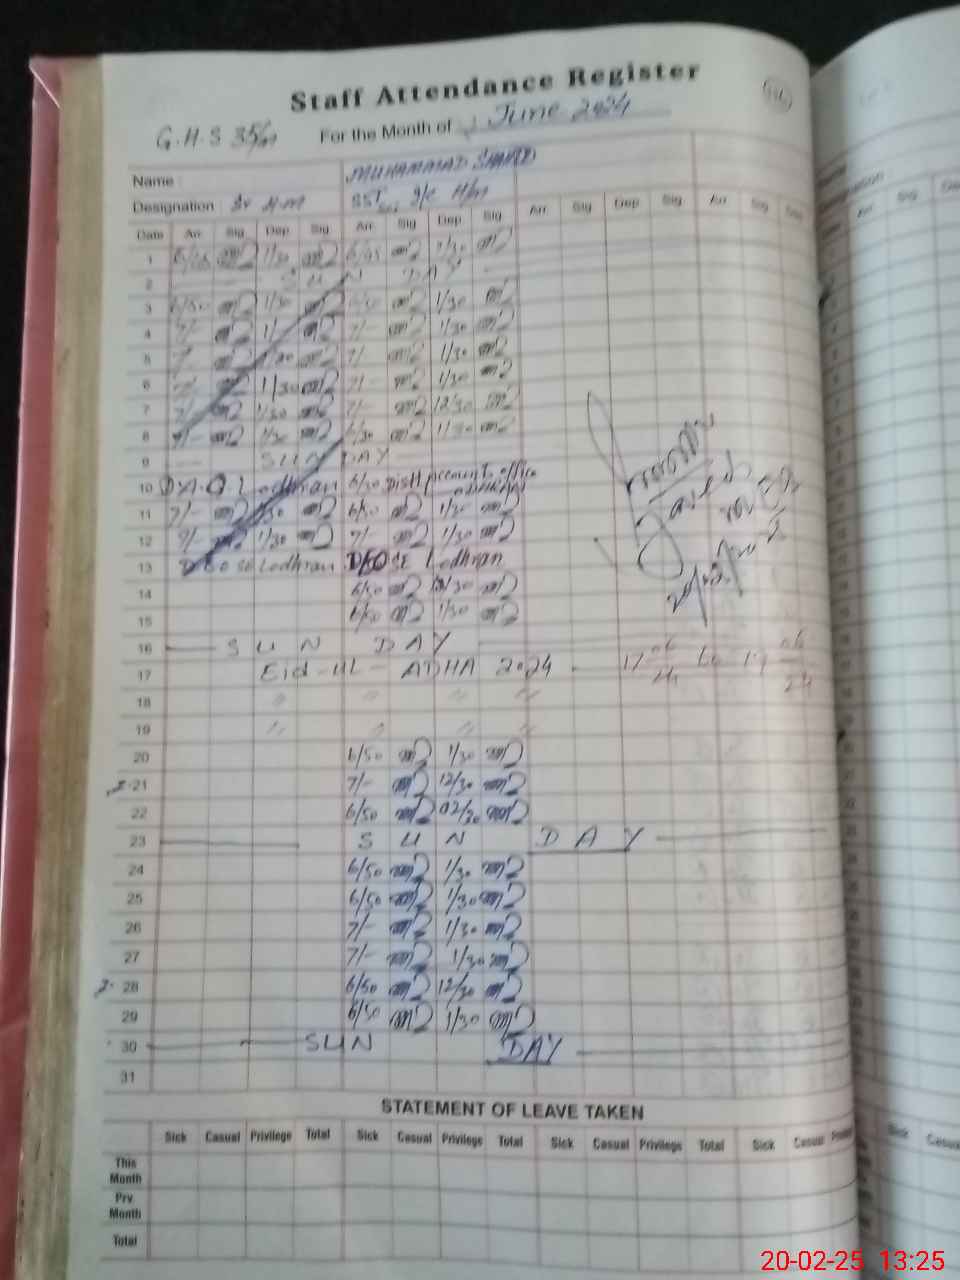 Staff Attendance Register
G.H.S 35/M For the Month of June 2024
Name MUHAMMAD
Designation Sr H.M SST I/C H/M
Date Arr Sig Dep Sig Arr Sig Dep Sig Arr Sig Dep Sig Arr Sig Dep
1 1/30 1/30
2 SUN DAY
3 6/50 1/30 6/50 1/30
4 7/- 1/- 7/- 1/30
5 7/- 1/30 7/- 1/30
6 7/- 1/30 7/- 1/30
7 7/- 1/30 7/- 12/30
8 7/- 1/30 6/30 1/30
9 SUN DAY
10 Lodhran 6/50 Distt Account office
11 7/- 1/30 6/50 1/30
12 7/- 1/30 7/- 1/30
13 DEO SE Lodhran DEO SE Lodhran
14 6/50 12/30
15 6/50 1/30
16 SUN DAY
17 Eid-UL-ADHA 2024 17 06 24 to 19 06 24
18 " " " "
19 " " " "
20 6/50 1/30
21 7/- 12/30
22 6/50 02/30
23 SUN DAY
24 6/50 1/30
25 6/50 1/30
26 7/- 1/30
27 7/- 1/30
28 6/50 12/30
29 6/50 1/30
30 SUN DAY
31
STATEMENT OF LEAVE TAKEN
Sick Casual Privilege Total Sick Casual Privilege Total Sick Casual Privilege Total Sick Casual
This Month
Prv. Month
Total
20-02-25 13:25